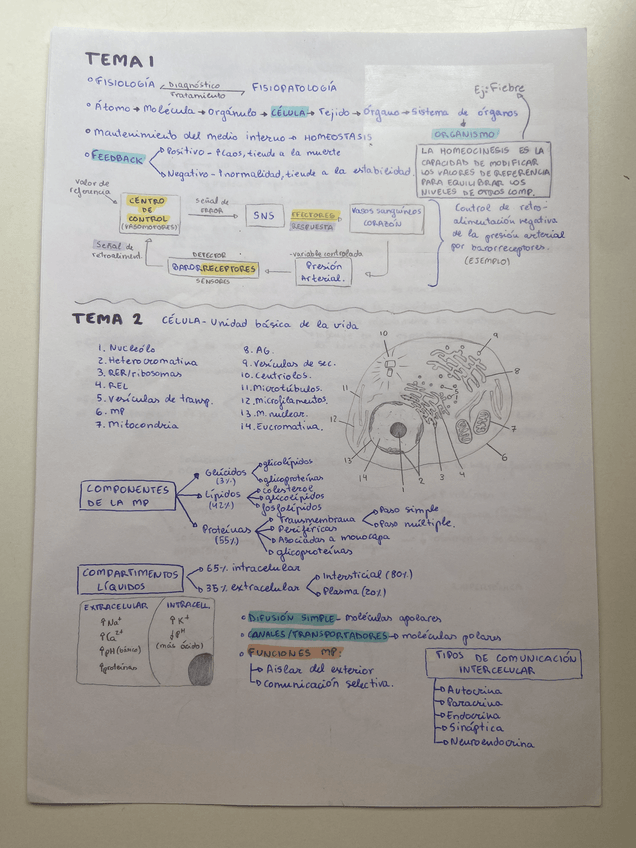 TEMA 1
° FISIOLOGÍA Diagnóstico Tratamiento FISIOPATOLOGÍA
Ej: Fiebre
° Átomo → Molécula → Orgánulo → CÉLULA → Tejido → Órgano → Sistema de órganos
ORGANISMO
° Mantenimiento del medio interno → HOMEOSTASIS
° FEEDBACK
Positivo - ↑caos, tiende a la muerte
Negativo - ↑normalidad, tiende a la estabilidad.
LA HOMEOCINESIS ES LA
CAPACIDAD DE MODIFICAR
LOS VALORES DE REFERENCIA
PARA EQUILIBRAR LOS
NIVELES DE OTROS COMP.
valor de
referencia
CENTRO
DE
CONTROL
(VASOMOTORES)
señal de
ERROR
SNS
EFECTORES
RESPUESTA
Vasos sanguíneos
CORAZÓN
Señal de
retroaliment.
DETECTOR
BARORRECEPTORES
SENSORES
variable controlada
Presión
Arterial.
Control de retro-
alimentación negativa
de la presión arterial
por barorreceptores.
(EJEMPLO)
TEMA 2 CÉLULA - Unidad básica de la vida
1. Nucleólo
2. Heterocromatina
3. RER/ribosomas
4. REL
5. Vesículas de transp.
6. MP
7. Mitocondria
8. AG.
9. Vesículas de sec.
10. Centriolos.
11. Microtúbulos.
12. Microfilamentos.
13. M. nuclear.
14. Eucromatina.
10
9
8
11
7
12
6
13
14
1
2
3
4
COMPONENTES
DE LA MP
Glúcidos
(3%)
glicolípidos
glicoproteínas
Lípidos
(42%)
colesterol
glicolípidos
fosfolípidos
Proteínas
(55%)
Transmembrana
Paso simple
Paso múltiple.
Periféricas
Asociadas a monocapa
glicoproteínas
COMPARTIMENTOS
LÍQUIDOS
65% intracelular
35% extracelular
Intersticial (80%)
Plasma (20%)
EXTRACELULAR
↑Na⁺
↑Ca²⁺
↑pH (básico)
↑proteínas
INTRACELL.
↑K⁺
↓PH
(más ácido)
° DIFUSIÓN SIMPLE - moléculas apolares
° CANALES/TRANSPORTADORES → moléculas polares
° FUNCIONES MP:
Aislar del exterior
comunicación selectiva.
TIPOS DE COMUNICACIÓN
INTERCELULAR
Autocrina
Paracrina
Endocrina
Sináptica
Neuroendocrina